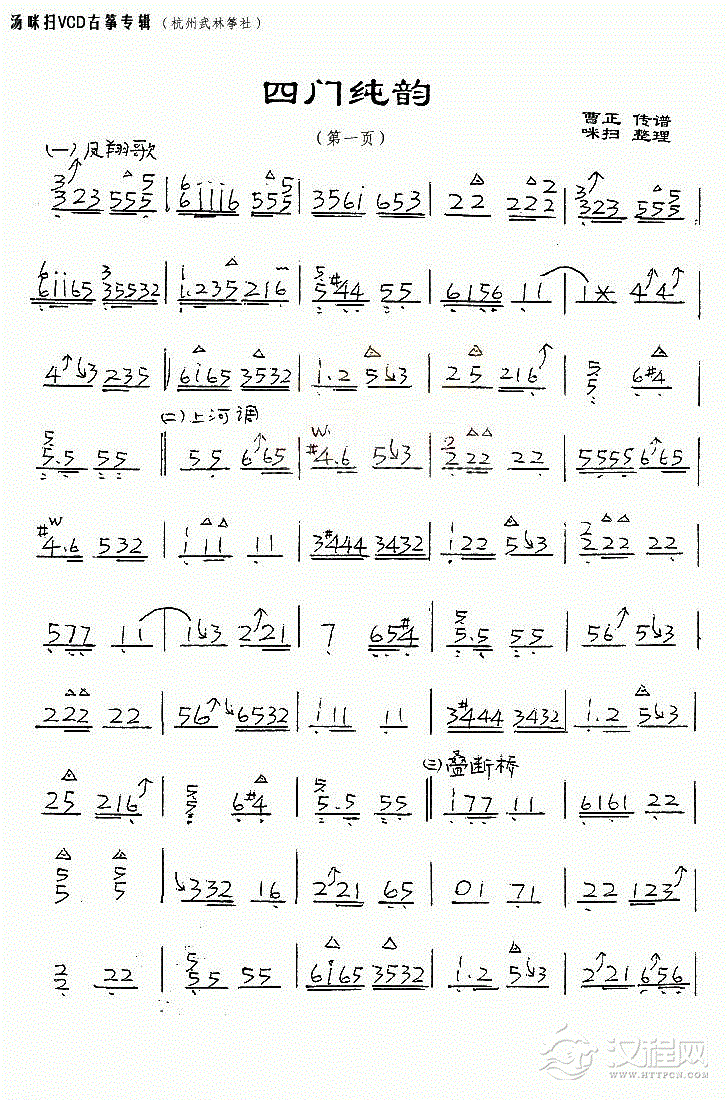 汤咪扫VCD古筝专辑（杭州武林筝社）
四门纯韵
（第一页）
曹正 传谱
咪扫 整理
(一)凤翔歌
3 323 555 5 | 6 6iiii 555 5 | 356i 653 | 22 222 2 | 3 323 555 5
6 6ii65 3 35532 | i.235 216 | 5 5#44 55 | 6156 11 | 1* 44
4 3 235 | 6i65 3532 | i.2 5 3 | 25 216 | 5 5 6#4
(二)上河调
5 5.5 55 | 55 665 | #4.6 5 3 | 2 222 22 | 5555 665
#4.6 532 | i 11 11 | 3#444 3432 | i22 5 3 | 2 222 22
577 11 | 1 3 221 | 7 65#4 | 5 5.5 55 | 56 5 3
222 22 | 56 6532 | i11 11 | 3#444 3432 | i.2 5 3
(三)叠断桥
25 216 | 5 5 6#4 | 5 5.5 55 | i77 11 | 6161 22
5 5 5 5 | 332 16 | 221 65 | 01 71 | 22 123
2 2 22 | 5 55 55 | 6i65 3532 | i.2 5 3 | 221 656
汉程网
WWW.HTTPCN.COM